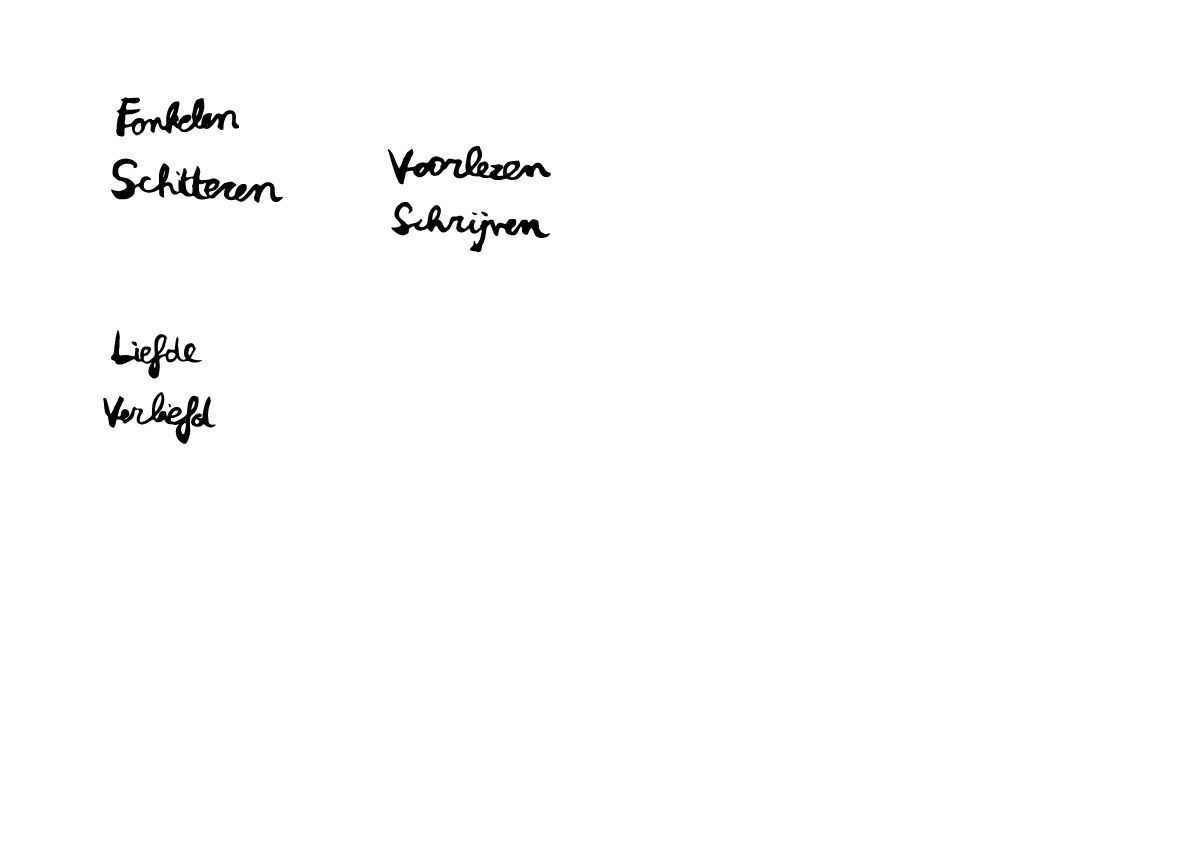 Fonkelen
Schitteren
Voorlezen
Schrijven
Liefde
Verliefd